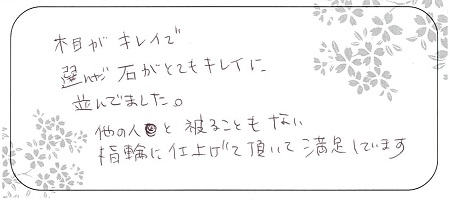 木目がキレイで
選んだ石がとてもキレイに
並んでました。
他の人と被ることもない
指輪に仕上げて頂いて満足しています